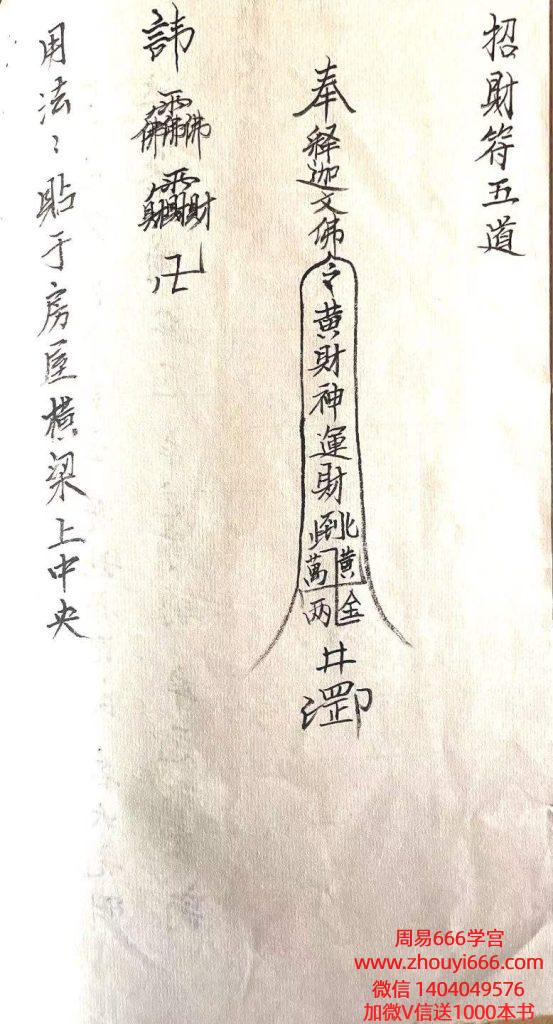 招財符五道
奉释迦文佛令黄財神運財到黄金萬两井
諱卍
用法：貼于房屋横梁上中央
周易666学宫
www.zhouyi666.com
微信 1404049576
加微V信送1000本书